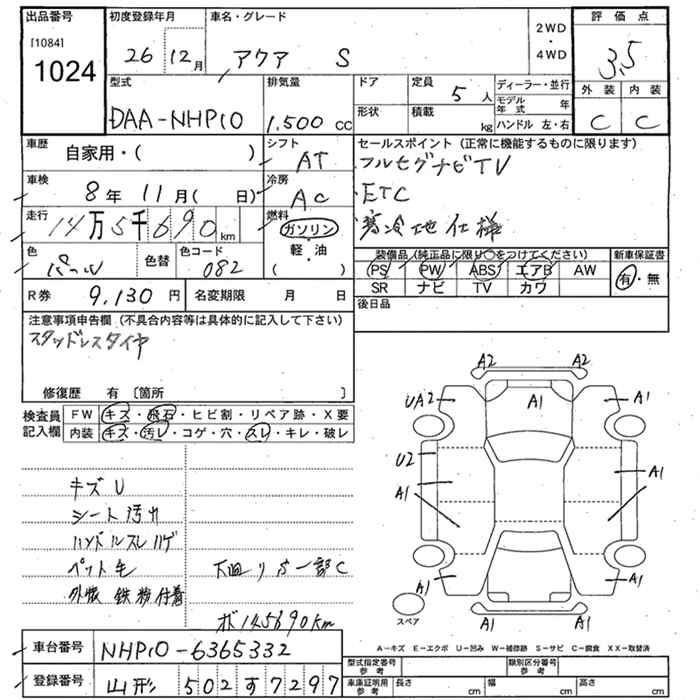 出品番号 [1084] 1024
初度登録年月 26 12月
車名・グレード アクア S
2WD・4WD
評価点 3.5
外装 内装
C C
型式 DAA-NHP10
排気量 1,500 cc
ドア
定員 5人
形状
積載 kg
ディーラー・並行
モデル年式 年
ハンドル 左・右
車歴 自家用・( )
シフト AT
車検 8年11月( 日)
冷房 AC
走行 14万5千690km
燃料 ガソリン 軽・油 ( )
色 パール
色替
色コード 082
セールスポイント(正常に機能するものに限ります)
フルセグナビTV
ETC
寒冷地仕様
装備品(純正品に限り○をつけてください)
PS PW ABS エアB AW
SR ナビ TV カワ
新車保証書 有・無
後日品
R券 9,130円
名変期限 月 日
注意事項申告欄(不具合内容等は具体的に記入して下さい)
スタッドレスタイヤ
修復歴 有〔箇所 〕
検査員記入欄
FW キズ・飛石・ヒビ割・リペア跡・X要
内装 キズ・汚レ・コゲ・穴・スレ・キレ・破レ
キズU
シート汚れ
ハンドルスレハゲ
ペット毛
外板 鉄粉付着
下廻りS一部C
ボ145690km
A2 A2
UA2 A1 A1
U2
A1 A1
A1 A1
A1 A1
スペア
A-キズ E-エクボ U-凹み W-補修跡 S-サビ C-腐食 XX-取替済
車台番号 NHP10-6365332
登録番号 山形 502す7297
型式指定番号 参考
類別区分番号 参考
車庫証明用 参考
長さ cm 幅 cm 高さ cm